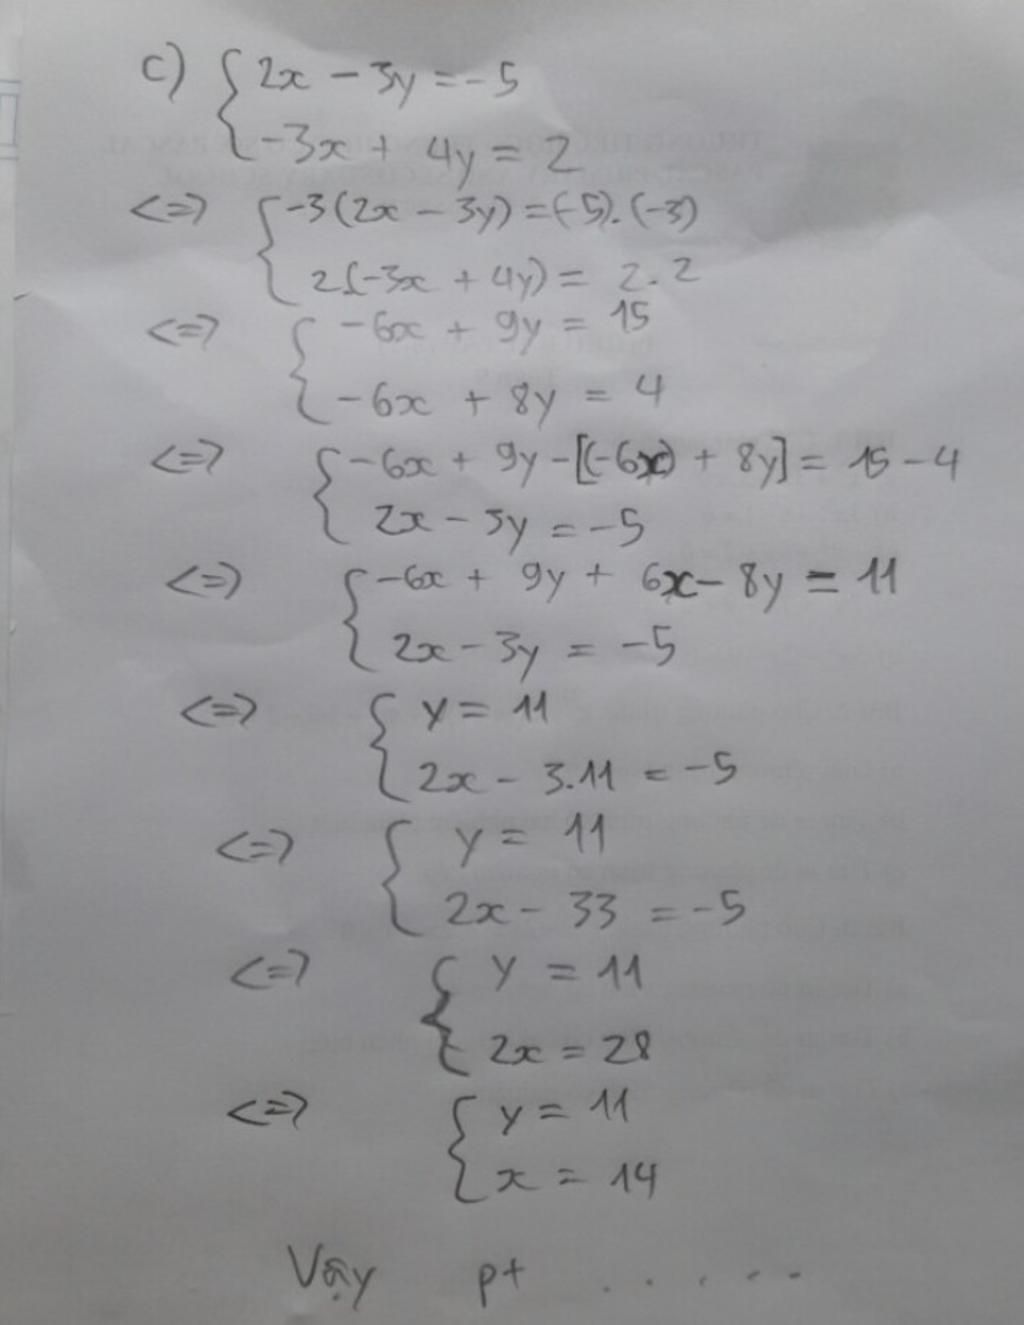 c) { 2x - 3y = -5
-3x + 4y = 2
<=> { -3(2x - 3y) = (-5).(-3)
2(-3x + 4y) = 2.2
<=> { -6x + 9y = 15
-6x + 8y = 4
<=> { -6x + 9y - [(-6x) + 8y] = 15 - 4
2x - 3y = -5
<=> { -6x + 9y + 6x - 8y = 11
2x - 3y = -5
<=> { y = 11
2x - 3.11 = -5
<=> { y = 11
2x - 33 = -5
<=> { y = 11
2x = 28
<=> { y = 11
x = 14
Vậy pt . . . . .